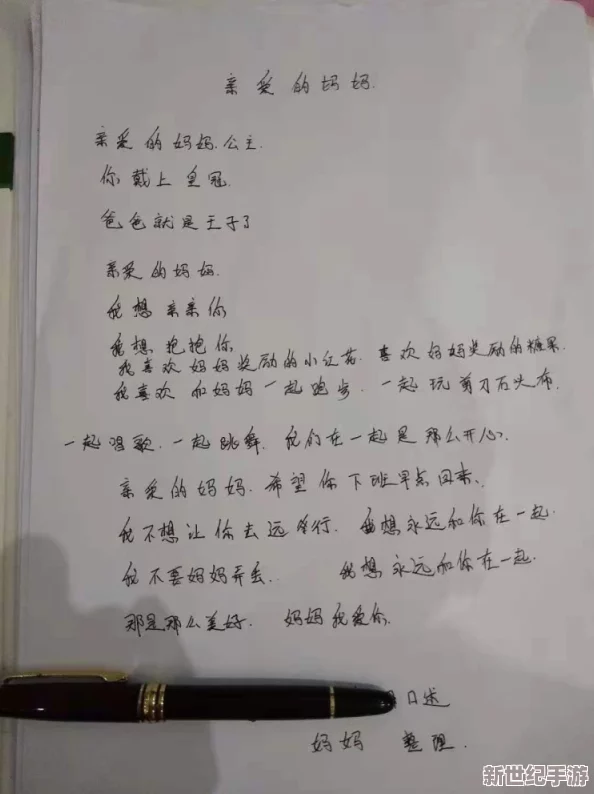 亲爱的妈妈.
亲爱的妈妈.公主.
你戴上皇冠.
爸爸就是王子了
亲爱的妈妈.
我想亲亲你
我想抱抱你
我喜欢妈妈奖励的小红花.喜欢妈妈奖励的糖果.
我喜欢和妈妈一起跑步.一起玩剪刀石头布.
一起唱歌.一起跳舞.我们在一起是那么开心.
亲爱的妈妈.希望你下班早点回来.
我不想让你去远行.我想永远和你在一起.
我不要妈妈弄丢.我想永远和你在一起.
那是那么美好.妈妈我爱你.
口述
妈妈 整理.
新世纪手游